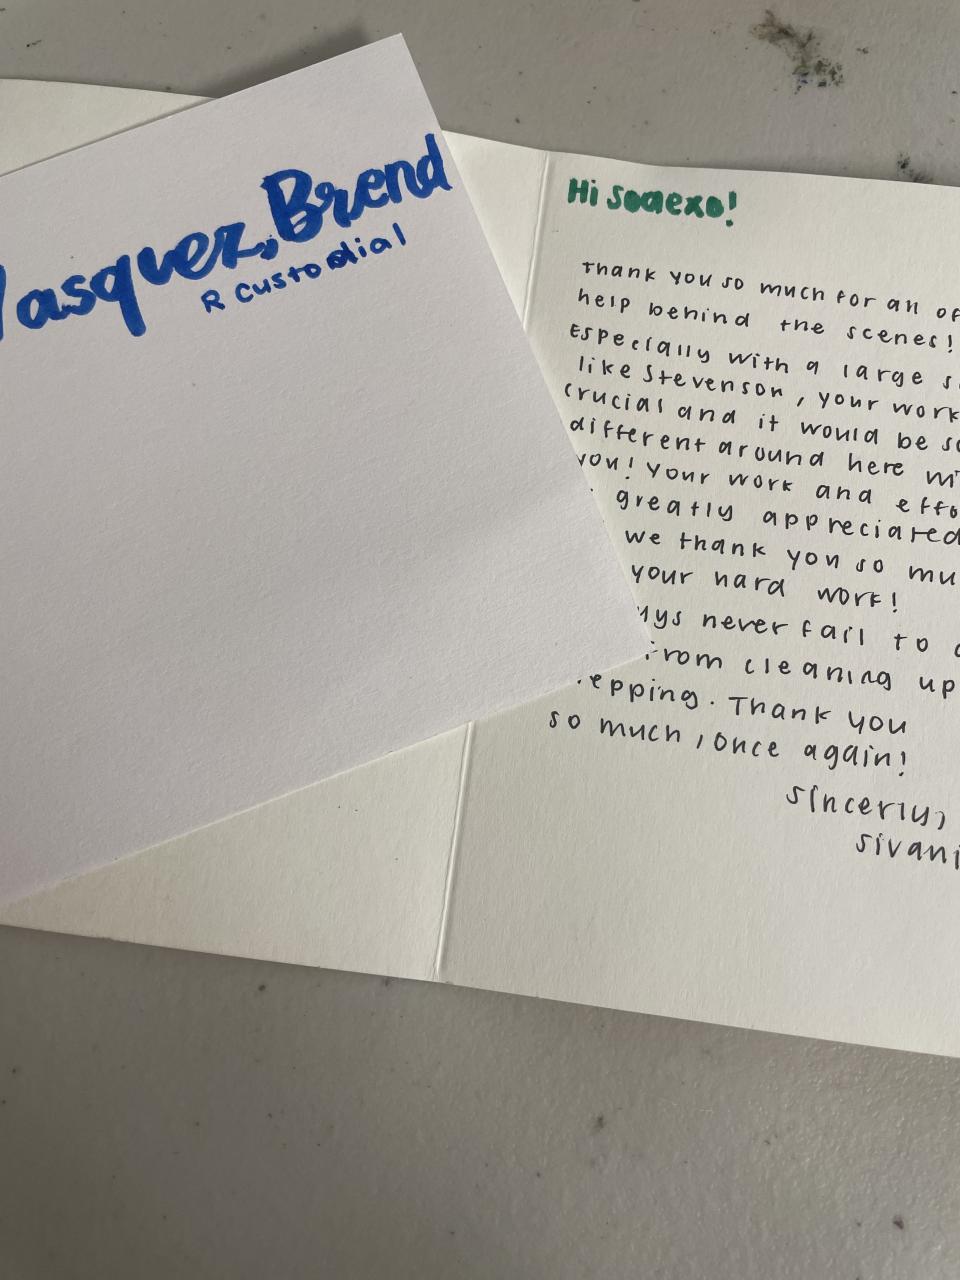 Vasquez, Brend
R custodial
Hi sodexo!
Thank you so much for all of
help behind the scenes!
Especially with a large s
like Stevenson, your work
crucial and it would be so
different around here wi
you! Your work and effo
greatly appreciated
we thank you so mu
your hard work!
uys never fail to
From cleaning up
repping. Thank you
so much, once again!
sincerly,
sivani